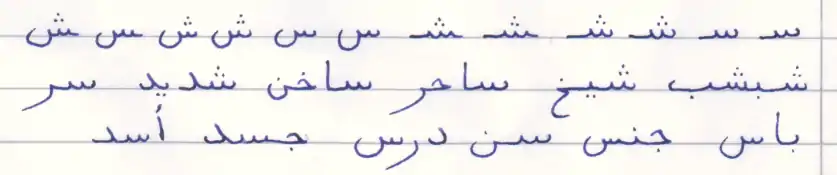 سـ سـ شـ شـ ـشـ ـشـ س س ش ش س ش
شبشب شيخ ساحر ساخن شديد سر
باس جنس سن درس جسد أسد